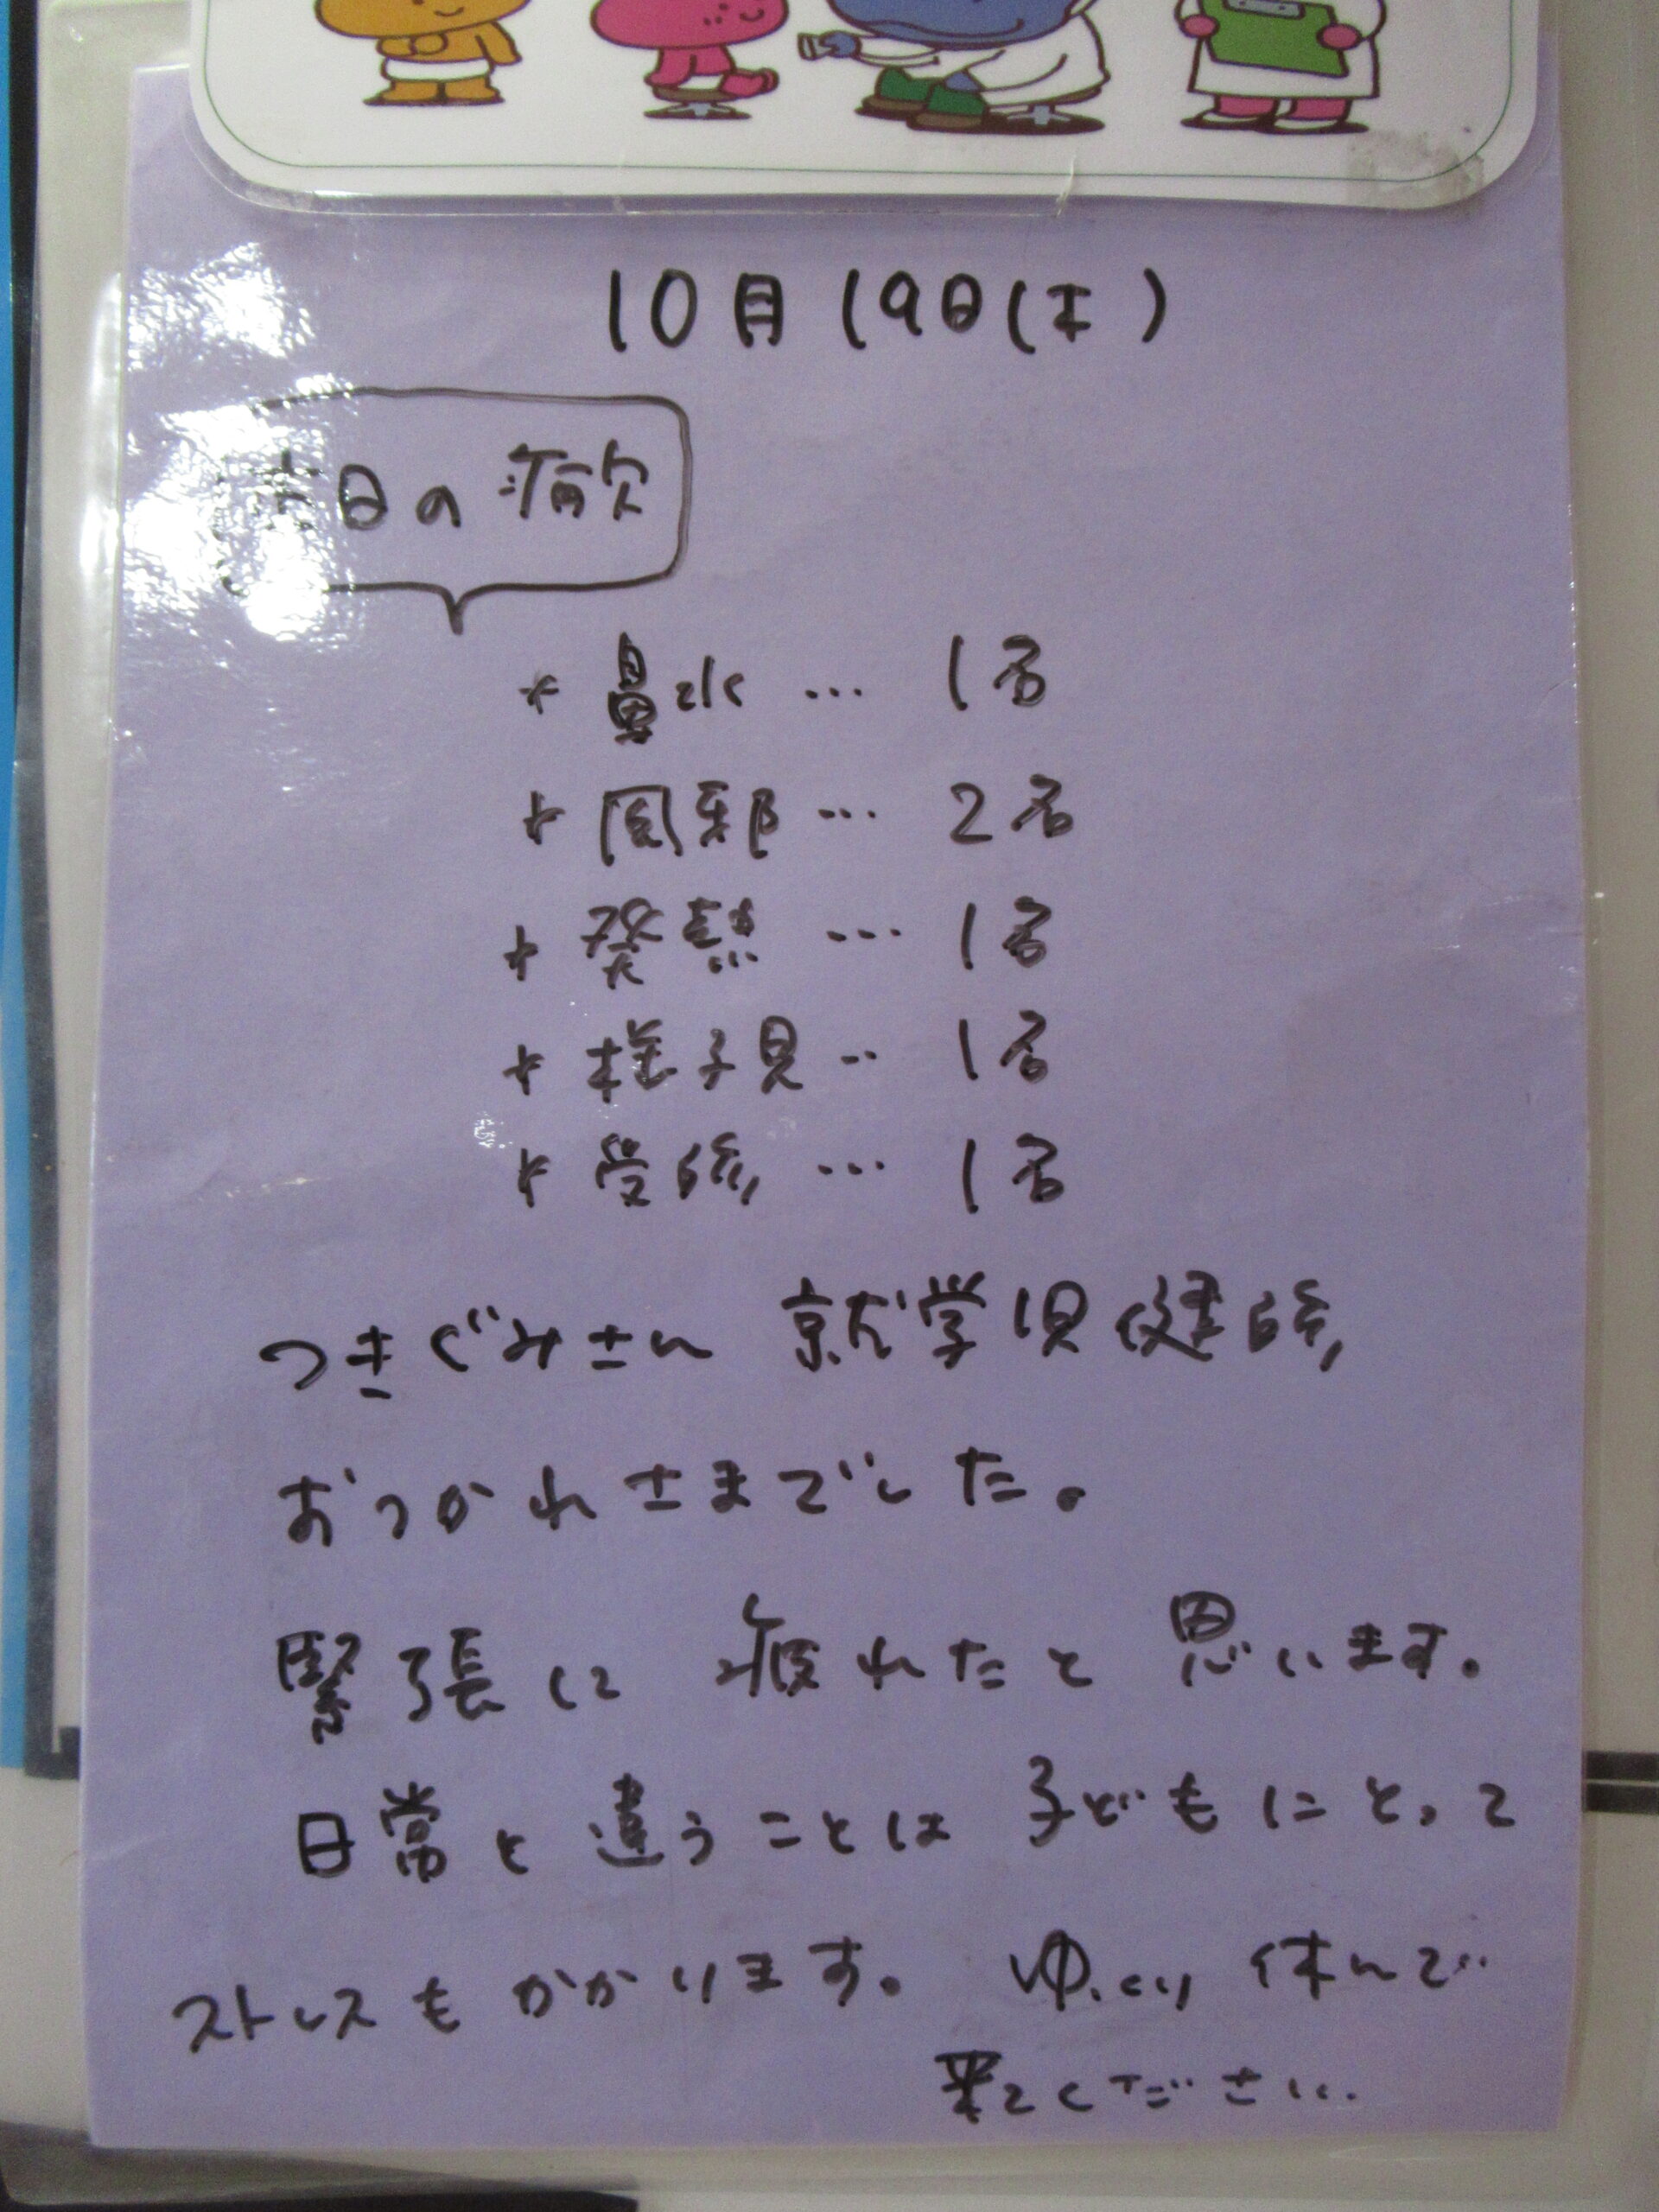 10月19日(木)
日の病欠
* 鼻水 … 1名
* 風邪 … 2名
* 発熱 … 1名
* 様子見 ‥ 1名
* 受診 … 1名
つきぐみさん 就学児健診
おつかれさまでした。
緊張に 疲れたと 思います。
日常と 違うことは 子どもにとって
ストレスもかかります。 ゆっくり 休んで
来てください.